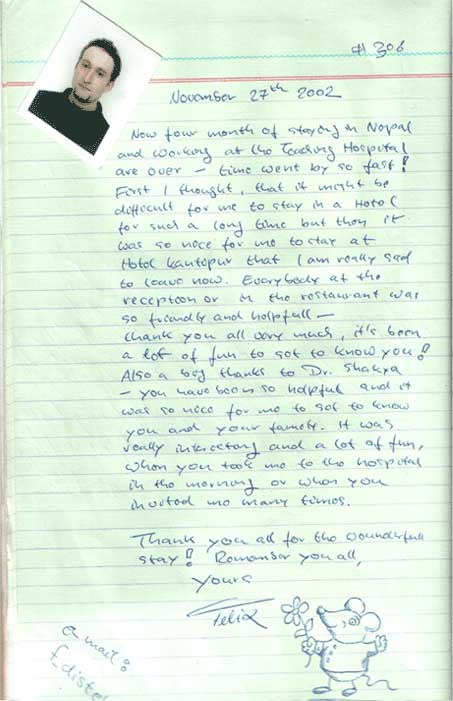 # 306
November 27th 2002
Now four month of staying in Nepal
and working at the Teaching Hospital
are over – time went by so fast!
First I thought, that it might be
difficult for me to stay in a Hotel
for such a long time but then it
was so nice for me to stay at
Hotel Kantipur that I am really sad
to leave now. Everybody at the
reception or in the restaurant was
so friendly and helpfull –
thank you all very much, it's been
a lot of fun to get to know you!
Also a big thanks to Dr. Shakya
– you have been so helpful and it
was so nice for me to get to know
you and your family. It was
really interesting and a lot of fun,
when you took me to the hospital
in the morning or when you
invited me many times.
Thank you all for the wounderfull
stay! Remember you all,
yours
Felix
e-mail:
f_diste